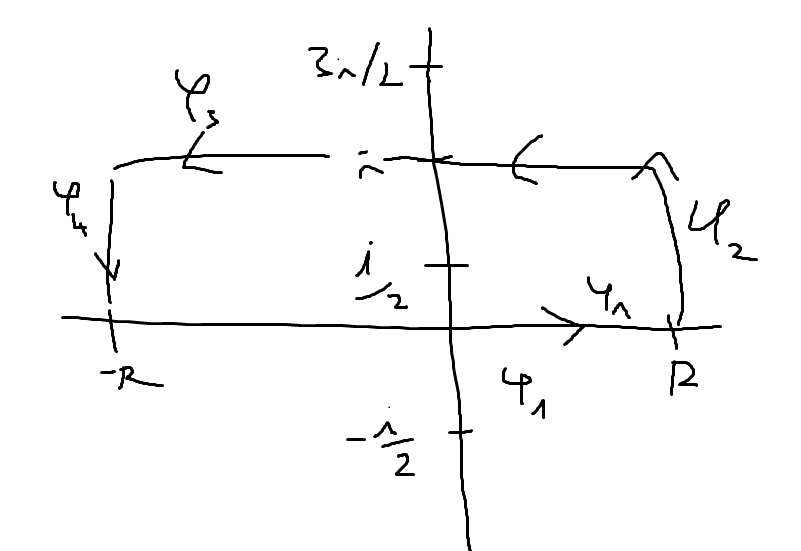 3i/2
φ₃
i
φ₄
φ₂
i/2
φ₁
-R
R
φ₁
-i/2